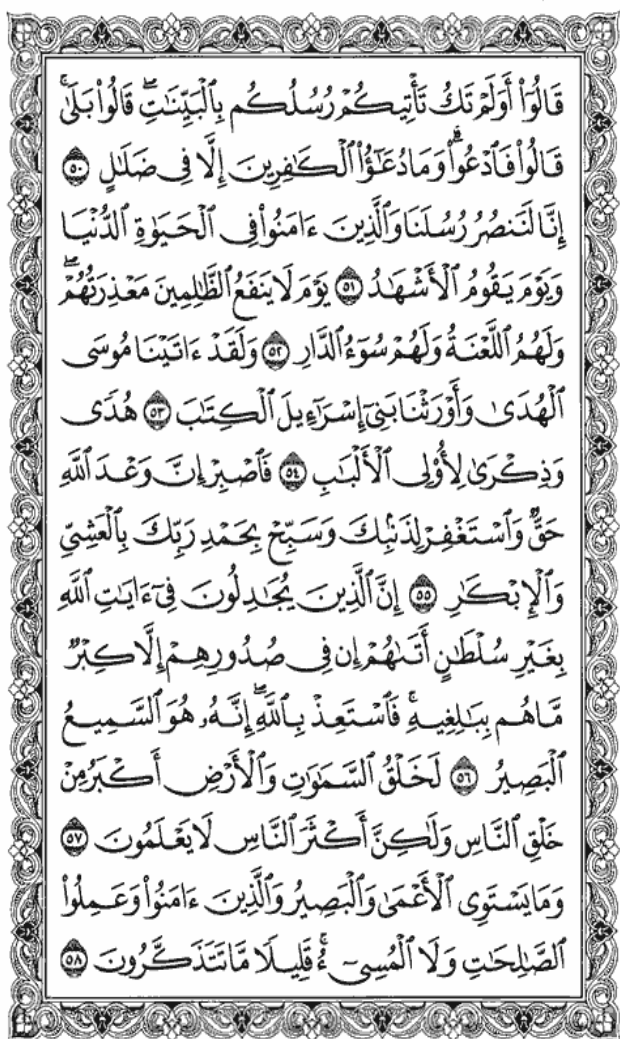 قَالُوٓاْ أَوَلَمْ تَكُ تَأْتِيكُمْ رُسُلُكُم بِٱلْبَيِّنَٰتِۖ قَالُواْ بَلَىٰۚ
قَالُواْ فَٱدْعُواْۗ وَمَا دُعَٰٓؤُاْ ٱلْكَٰفِرِينَ إِلَّا فِى ضَلَٰلٍ ٥٠
إِنَّا لَنَنصُرُ رُسُلَنَا وَٱلَّذِينَ ءَامَنُواْ فِى ٱلْحَيَوٰةِ ٱلدُّنْيَا
وَيَوْمَ يَقُومُ ٱلْأَشْهَٰدُ ٥١ يَوْمَ لَا يَنفَعُ ٱلظَّٰلِمِينَ مَعْذِرَتُهُمْۖ
وَلَهُمُ ٱللَّعْنَةُ وَلَهُمْ سُوٓءُ ٱلدَّارِ ٥٢ وَلَقَدْ ءَاتَيْنَا مُوسَى
ٱلْهُدَىٰ وَأَوْرَثْنَا بَنِىٓ إِسْرَٰٓءِيلَ ٱلْكِتَٰبَ ٥٣ هُدًى
وَذِكْرَىٰ لِأُوْلِى ٱلْأَلْبَٰبِ ٥٤ فَٱصْبِرْ إِنَّ وَعْدَ ٱللَّهِ
حَقٌّ وَٱسْتَغْفِرْ لِذَنۢبِكَ وَسَبِّحْ بِحَمْدِ رَبِّكَ بِٱلْعَشِىِّ
وَٱلْإِبْكَٰرِ ٥٥ إِنَّ ٱلَّذِينَ يُجَٰدِلُونَ فِىٓ ءَايَٰتِ ٱللَّهِ
بِغَيْرِ سُلْطَٰنٍ أَتَىٰهُمْ إِن فِى صُدُورِهِمْ إِلَّا كِبْرٌ
مَّا هُم بِبَٰلِغِيهِۚ فَٱسْتَعِذْ بِٱللَّهِۖ إِنَّهُۥ هُوَ ٱلسَّمِيعُ
ٱلْبَصِيرُ ٥٦ لَخَلْقُ ٱلسَّمَٰوَٰتِ وَٱلْأَرْضِ أَكْبَرُ مِنْ
خَلْقِ ٱلنَّاسِ وَلَٰكِنَّ أَكْثَرَ ٱلنَّاسِ لَا يَعْلَمُونَ ٥٧
وَمَا يَسْتَوِى ٱلْأَعْمَىٰ وَٱلْبَصِيرُ وَٱلَّذِينَ ءَامَنُواْ وَعَمِلُواْ
ٱلصَّٰلِحَٰتِ وَلَا ٱلْمُسِىٓءُۚ قَلِيلًا مَّا تَتَذَكَّرُونَ ٥٨